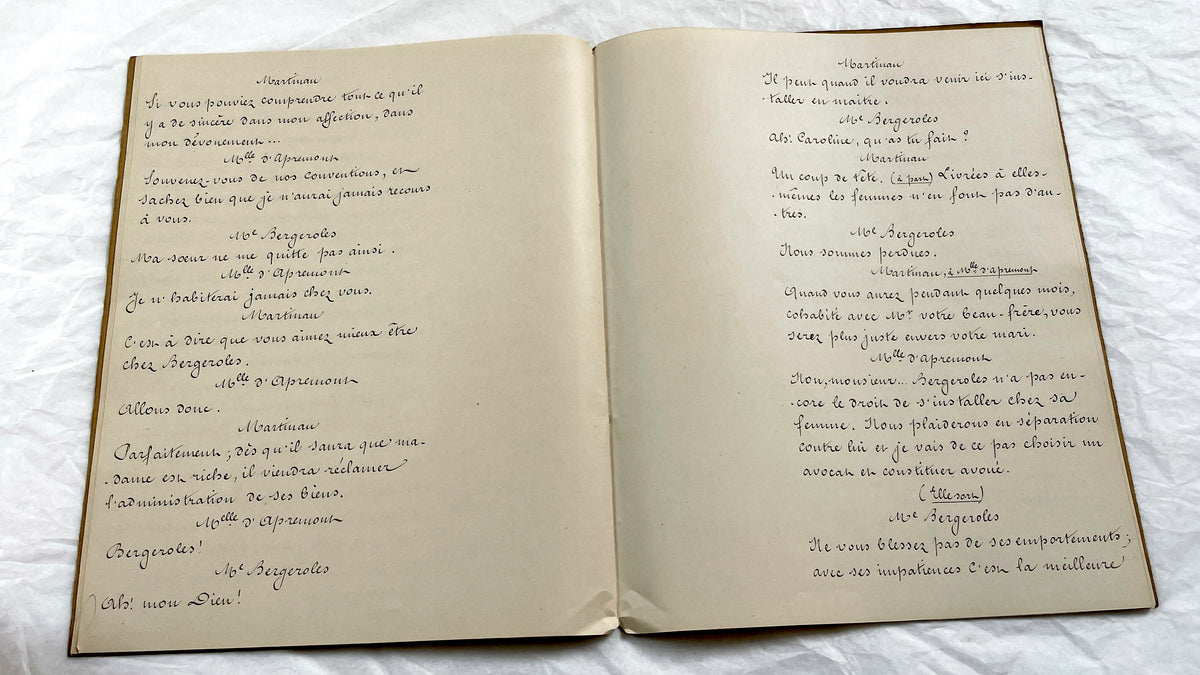 Martinau
Si vous pouviez comprendre tout ce qu'il
y a de sincère dans mon affection, dans
mon dévouement...
Mlle d'Apremont
Souvenez-vous de nos conventions, et
sachez bien que je n'aurai jamais recours
à vous.
Me Bergeroles
Ma sœur ne me quitte pas ainsi.
Mlle d'Apremont
Je n'habiterai jamais chez vous.
Martinau
C'est à dire que vous aimez mieux être
chez Bergeroles.
Mlle d'Apremont
Allons donc.
Martinau
Parfaitement; dès qu'il saura que ma-
-dame est riche, il viendra réclamer
l'administration de ses biens.
Melle d'Apremont
Bergeroles!
Me Bergeroles
Ah! mon Dieu!
Martinau
Il peut quand il voudra venir ici s'ins-
-taller en maître.
Me Bergeroles
Ah! Caroline, qu'as tu fait?
Martinau
Un coup de tête. (à part) Livrées à elles-
-mêmes les femmes n'en font pas d'au-
-tres.
Me Bergeroles
Nous sommes perdues.
Martinau, à Mlle d'apremont
Quand vous aurez pendant quelques mois,
cohabité avec Mr votre beau-frère, vous
serez plus juste envers votre mari.
Mlle d'apremont
Non, monsieur... Bergeroles n'a pas en-
-core le droit de s'installer chez sa
femme. Nous plaiderons en séparation
contre lui et je vais de ce pas choisir un
avocat et constituer avoué.
(Elle sort)
Me Bergeroles
Ne vous blessez pas de ses emportements;
avec ses impatiences C'est la meilleure